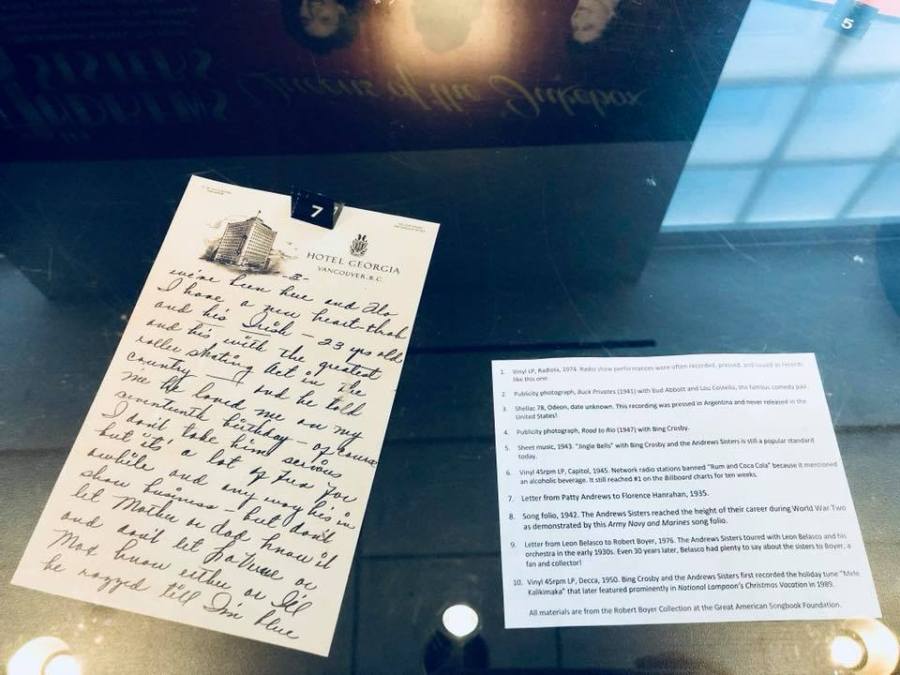 5
SISTERS
ANDREWS
Queens of the Jukebox
7
HOTEL GEORGIA
VANCOUVER, B.C.
we've been here and Also
I have a new heart-throb
and his Irish - 23 yrs old
and his with the greatest
roller skating act in the
country - and he told
me he loved me on my
seventeenth birthday - of course
I don't take him serious
but it's a lot of fun for
awhile and any way his in
show business - but don't
let Mother or dad know it
and don't let LaVerne or
Max know either or I'll
be razzed till I'm blue
1. Vinyl LP, Radiola, 1974. Radio show performances were often recorded, pressed, and issued as records
like this one.
2. Publicity photograph, Buck Privates (1941) with Bud Abbott and Lou Costello, the famous comedy pair.
3. Shellac 78, Odeon, date unknown. This recording was pressed in Argentina and never released in the
United States!
4. Publicity photograph, Road to Rio (1947) with Bing Crosby.
5. Sheet music, 1943. "Jingle Bells" with Bing Crosby and the Andrews Sisters is still a popular standard
today.
6. Vinyl 45rpm LP, Capitol, 1945. Network radio stations banned "Rum and Coca Cola" because it mentioned
an alcoholic beverage. It still reached #1 on the Billboard charts for ten weeks.
7. Letter from Patty Andrews to Florence Hanrahan, 1935.
8. Song folio, 1942. The Andrews Sisters reached the height of their career during World War Two
as demonstrated by this Army Navy and Marines song folio.
9. Letter from Leon Belasco to Robert Boyer, 1976. The Andrews Sisters toured with Leon Belasco and his
orchestra in the early 1930s. Even 30 years later, Belasco had plenty to say about the sisters to Boyer, a
fan and collector!
10. Vinyl 45rpm LP, Decca, 1950. Bing Crosby and the Andrews Sisters first recorded the holiday tune "Mele
Kalikimaka" that later featured prominently in National Lampoon's Christmas Vacation in 1989.
All materials are from the Robert Boyer Collection at the Great American Songbook Foundation.